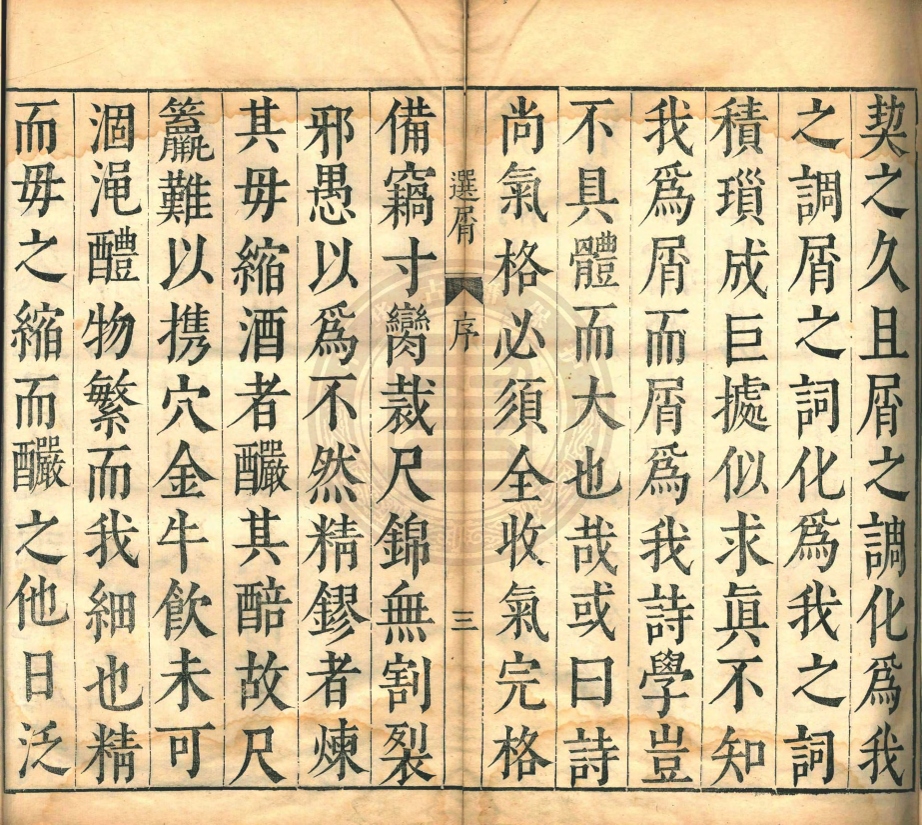 契之久且屑之調化爲我
之調屑之詞化爲我之詞
積瑣成巨據似求眞不知
我爲屑而屑爲我詩學豈
不具體而大也哉或曰詩
尚氣格必須全收氣完格
選屑 序 三
備竊寸臠裁尺錦無割裂
邪愚以爲不然精鏐者煉
其毋縮酒者釅其醅故尺
籯難以携穴金牛飲未可
涸澠醴物繁而我細也精
而毋之縮而釅之他日泛